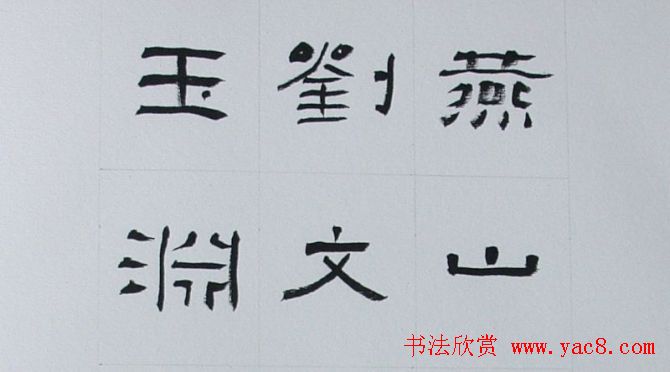 燕山
劉文
玉淵
书法欣赏 www.yac8.com